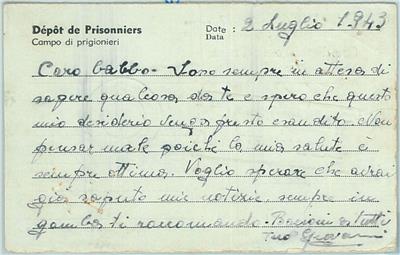 Dépôt de Prisonniers
Campo di prigionieri
Date : 2 Luglio 1943
Data
Caro babbo - Sono sempre in attesa di
sapere qualcosa da te e spero che questo
mio desiderio venga presto esaudito. Non
pensar male poichè la mia salute è
sempre ottima. Voglio sperare che avrai
già saputo mie notizie. sempre in
gamba ti raccomando. Bacioni a tutti
tuo Giovanni